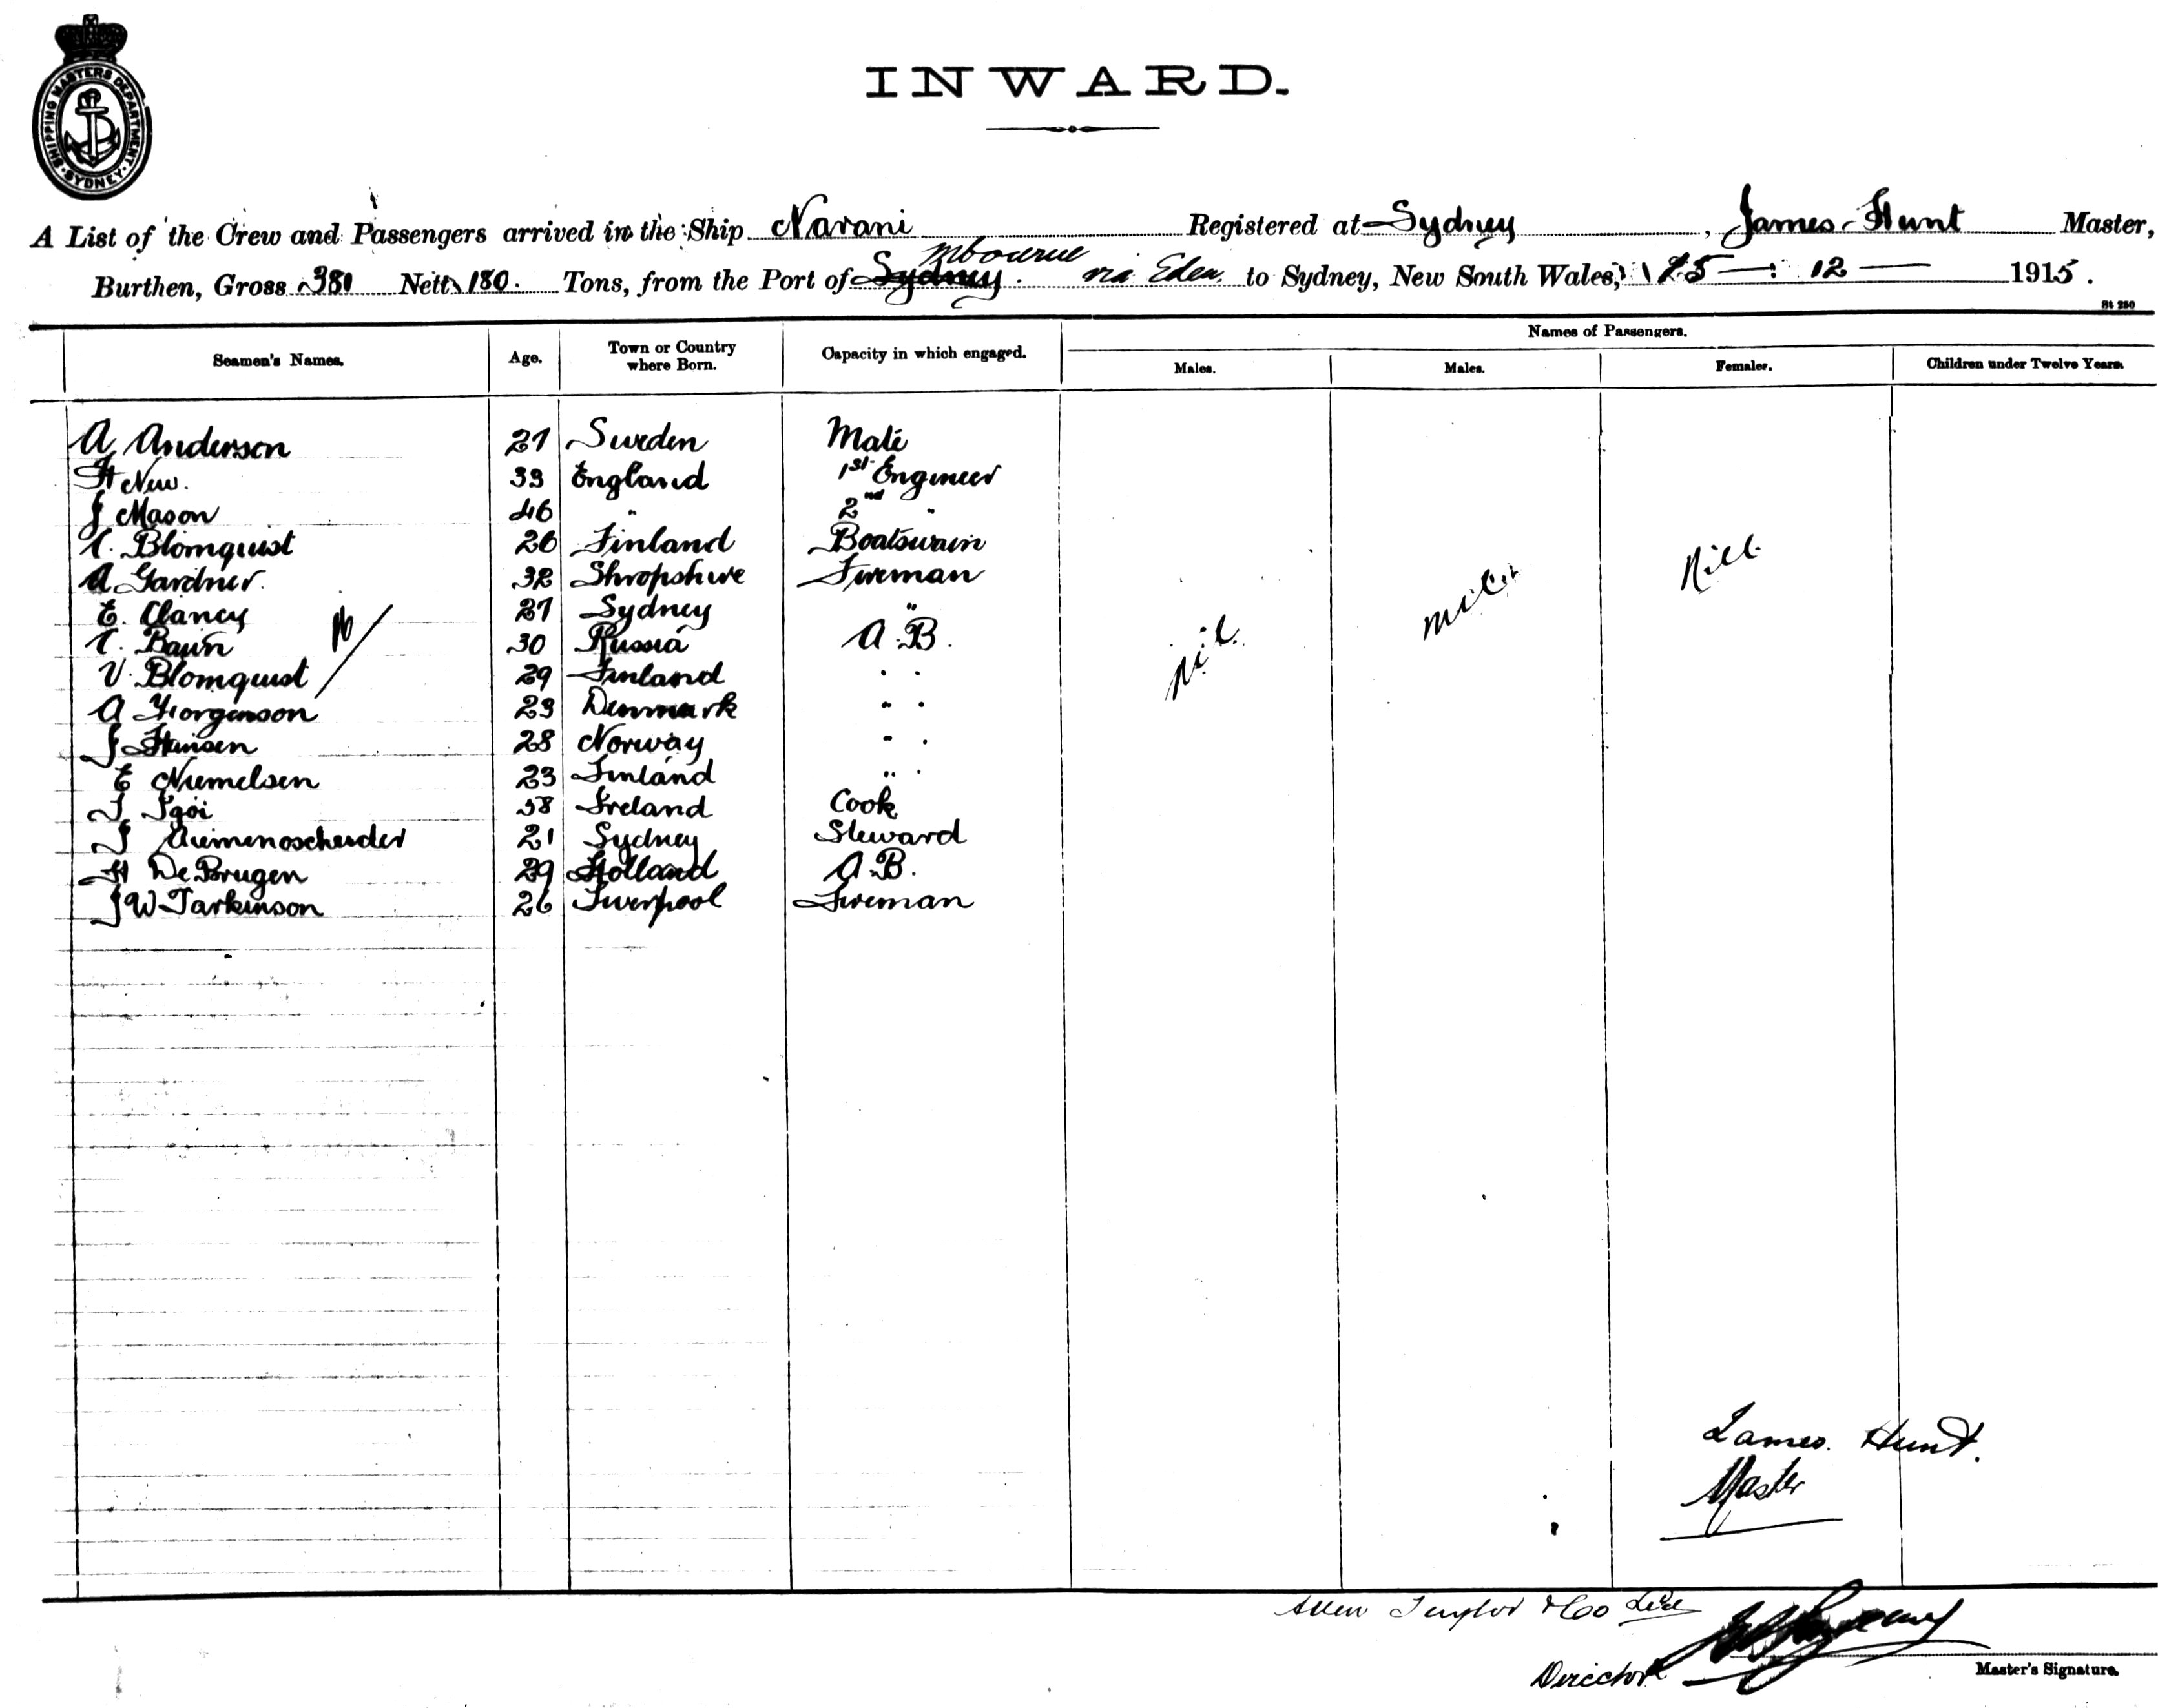 SHIPPING MASTERS DEPARTMENT. SYDNEY.
INWARD.
A List of the Crew and Passengers arrived in the Ship Narani Registered at Sydney, James Hunt Master,
Mbourne
Burthen, Gross 381 Nett 180. Tons, from the Port of Sydney. via Eden. to Sydney, New South Wales, 25 - 12 - 1915.
St 280
Names of Passengers.
Seamen's Names. Age. Town or Country where Born. Capacity in which engaged. Males. Males. Females. Children under Twelve Years.
A Anderson 27 Sweden Mate
H New. 33 England 1st Engineer
J Mason 46 " 2nd "
Blomquist 26 Finland Boatswain
A Gardner. 32 Shropshire Fireman
E. Clancy 27 Sydney "
30 Russia A.B.
V. Blomquist 29 Finland " "
A Yorgenson 23 Denmark " "
J Hansen 28 Norway " "
E Niemelsen 23 Finland " "
58 Ireland Cook
J 21 Sydney Steward
H De Brugen 29 Holland A.B.
J W Parkinson 26 Liverpool Fireman
nil. nil. Nill.
James. Hunt.
Master
Allen Taylor & Co Ltd
Director
Master's Signature.